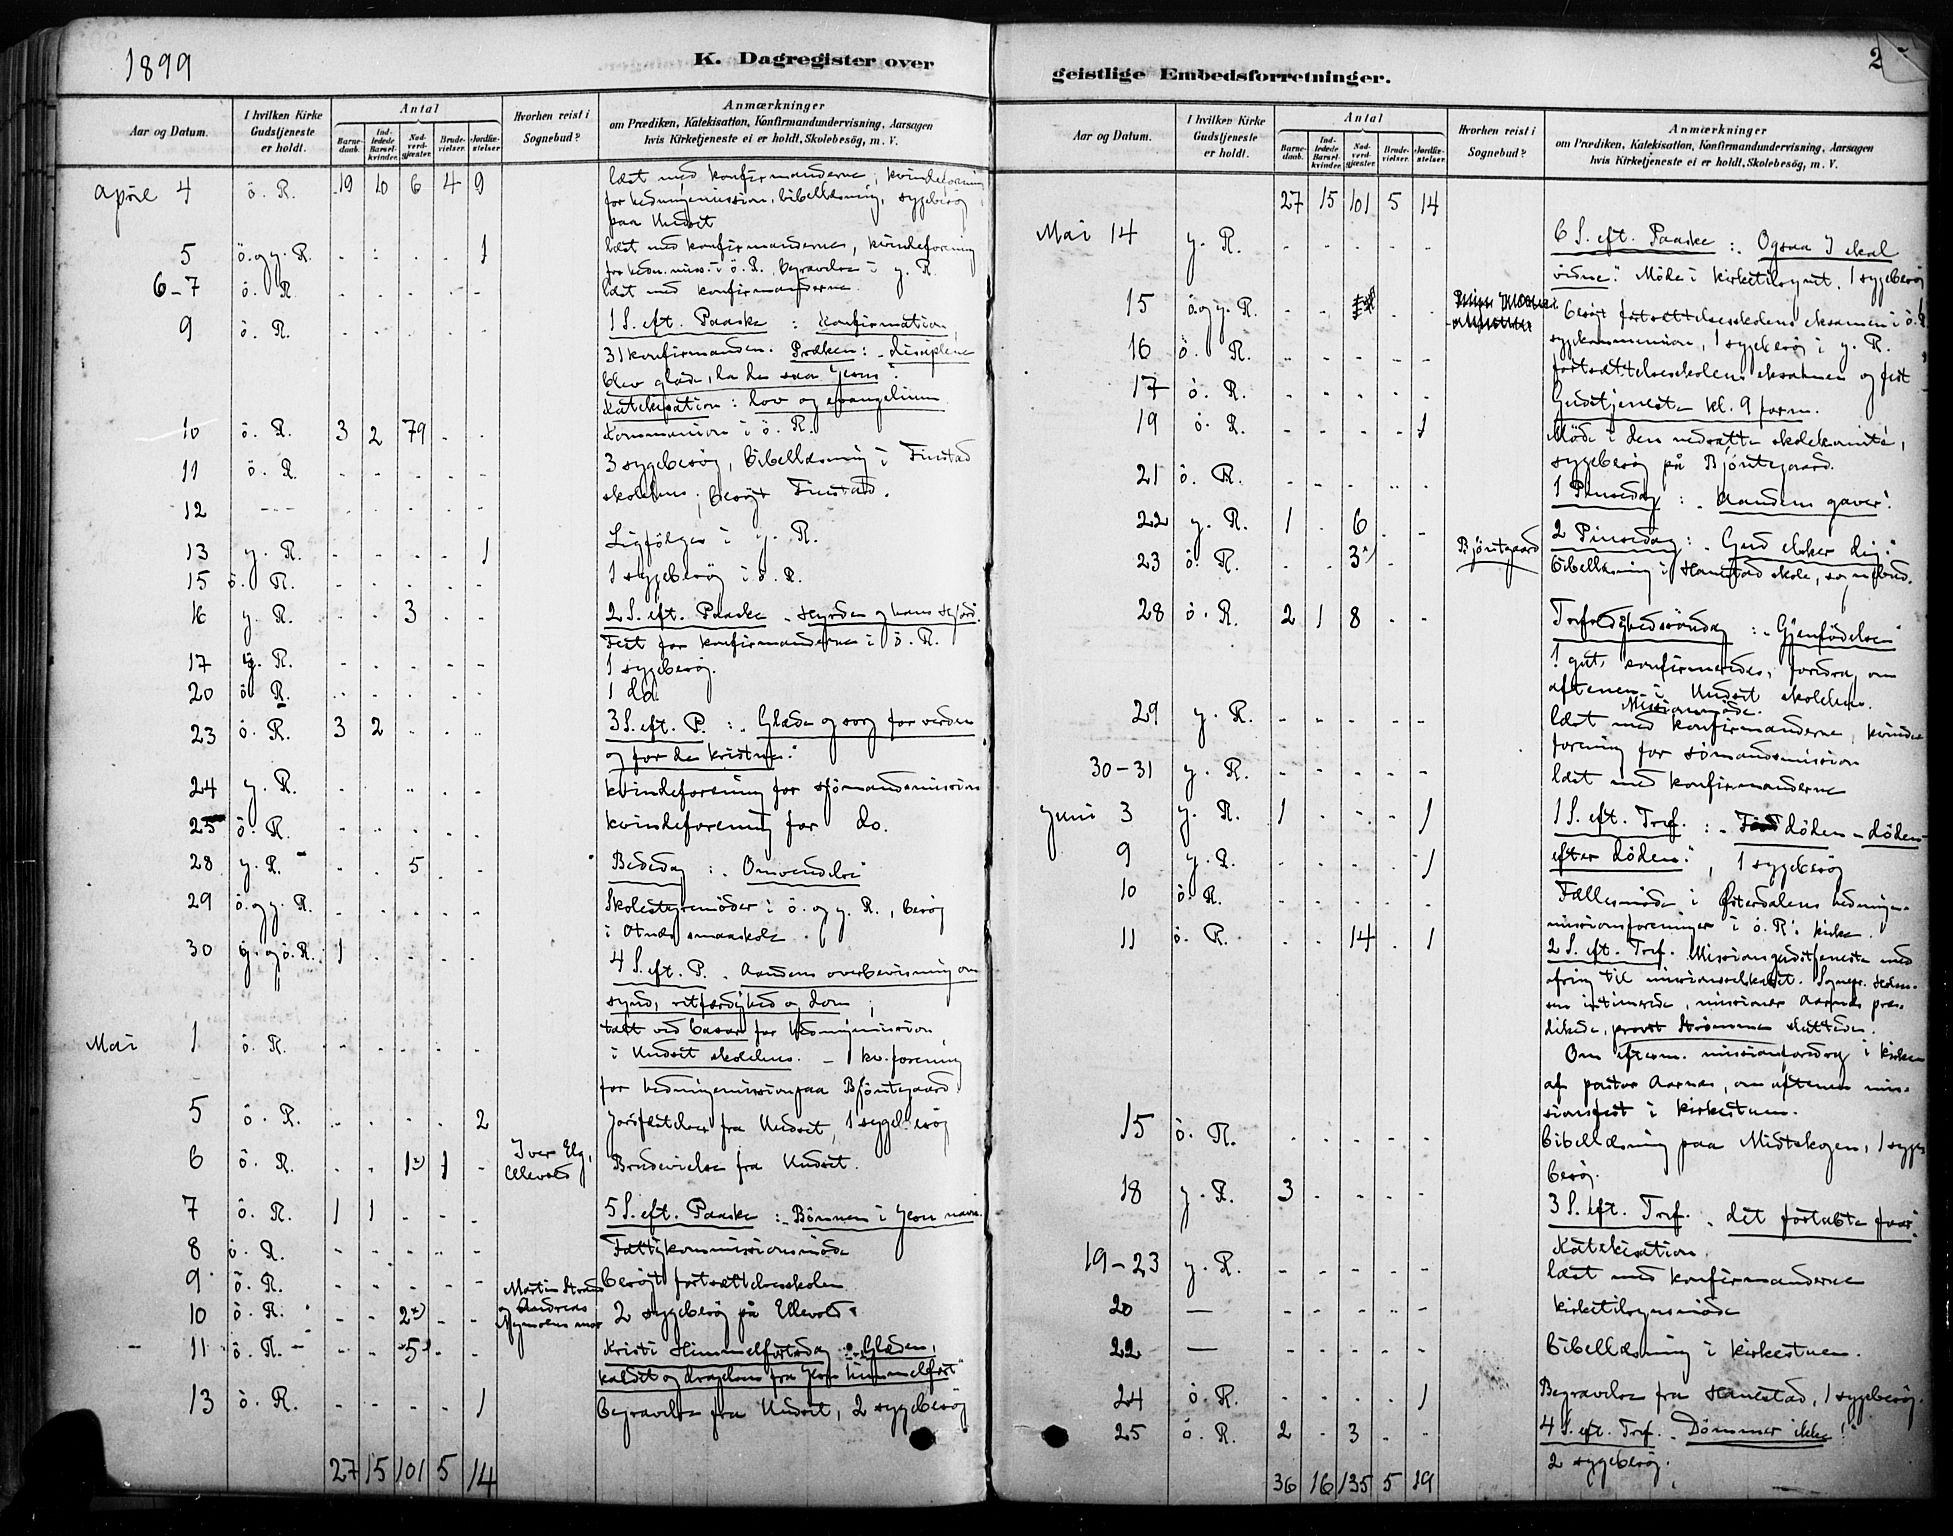 1899
K. Dagregister over
Aar og Datum.
I hvilken Kirke Gudstjeneste er holdt.
Antal
Barnedaab.
Indledede Barselkvinder.
Nadverdgjæster.
Brudevielser.
Jordfæstelser
Hvorhen reist i Sognebud?
Anmærkninger
om Prædiken, Katekisation, Konfirmandundervisning, Aarsagen
hvis Kirketjeneste ei er holdt, Skolebesøg, m. V.
April 4 ö. R. 19 10 6 4 9 læst med konfirmanderne, kvindeforening
for hedningemission, bibellæsning, sygebesøg
paa Undset
5 ö. og y. R. - - - - 1 læst med konfirmanderne, kvindeforening
for hedn. miss. i ö. R. begravelse i y. R.
6-7 ö. R. - - - - - læst med konfirmanderne.
9 ö. R. 1 S. eft. Paaske : Konfirmation,
31 konfirmander. Præken: "disciplene
blev glade, da de saa Jesus".
Katekisation: lov og evangelium
10 ö. R. 3 2 79 - - Kommunion i ö. R.
11 ö. R. - - - - - 3 sygebesøg, bibellæsning i Finstad
skolehus; besøgt Finstad.
12 --- - - - - -
13 y. R. - - - - 1 Ligfølger i y. R.
15 ö. R. - - - - - 1 sygebesøg i ö. R.
16 y. R. - - 3 - - 2 S. eft. Paaske "Hyrden og hans Hjord".
Fest for konfirmanderne i ö. R.
17 y. R. - - - - - 1 sygebesøg.
20 ö R. - - - - - 1 do.
23 ö. R. 3 2 - - - 3 S. eft. P. : "Glæde og sorg for verden
og for de kristne."
24 y. R. - - - - - kvindeforening for sjömandsmission
25 ö. R. - - - - - kvindeforening for do.
28 y. R. - - 5 - - Bededag : "Omvendelse"
29 ö. og y. R. - - - - - Skolestyremöder i ö. og y. R., besøg
i Otnes smaaskole.
30 y. og ö. R. 1 - - - - 4 S. eft. P. "Aandens overbevisning om
synd, retfærdighed og dom";
talt ved basar for hedningemission
Mai 1 ö. R. - - - - - i Undset skolehus. - kv. forening
for hedningemission paa Bjöntegaard
5 ö. R. - - - - 2 Jordfæstelser fra Undset, 1 sygebesøg
6 ö. R. - - 1 1 - Iver Elg, Ellevold Brudevielse fra Undset.
7 ö. R. 1 1 - - - 5 S. eft. Paaske : "Bönnen i Jesu navn.
8 ö. R. - - - - - Fattigkommissionsmöde
9 ö. R. - - - - - besøgt fortsættelsesskolen
10 ö. R. - - 2 - - Martin Strand og Andreas 2 sygebesøg på Ellevold
11 ö. R. - - 5 - - Kristi Himmelfartsdag : "Glæden,
kaldet og dragelsen fra Jesu himmelfart"
13 ö. R. - - - - 1 Begravelse fra Undset, 2 sygebesøg
27 15 101 5 14
geistlige Embedsforretninger.
2
Aar og Datum.
I hvilken Kirke Gudstjeneste er holdt.
Antal
Barnedaab.
Indledede Barselkvinder.
Nadverdgjæster.
Brudevielser.
Jordfæstelser
Hvorhen reist i Sognebud?
Anmærkninger
om Prædiken, Katekisation, Konfirmandundervisning, Aarsagen
hvis Kirketjeneste ei er holdt, Skolebesøg, m. V.
27 15 101 5 14
Mai 14 y. R. - - - - - 6 S. eft. Paaske : "Ogsaa I skal
vidne". Möde i kirketilsynet. 1 sygebesøg
15 ö. og y. R. - - - - besøgt fortsættelsesskolens eksamen i ö. R.
16 ö. R. - - - - - sygekommunion, 1 sygebesøg i y. R.
fortsættelsesskolens eksamen og fest
17 ö. R. - - - - - Gudstjeneste kl. 9 form.
19 ö. R. - - - - 1 Möde i den nedsatte skolekomité,
sygebesøg på Bjöntegaard.
21 ö. R. - - - - - 1 Pinsedag : "Aandens gaver".
22 y. R. 1 - 6 - - 2 Pinsedag : "Gud elsker dig."
23 ö. R. - - 3 Bjöntgaard Bibellæsning i Hanestad skole, sognebud.
28 ö. R. 2 1 8 - - Trefoldighedssöndag : "Gjenfödelse"
1 gut konfirmeredes, foredrag om
aftenen i Undset skolehus.
Missionsmöde.
29 y. R. - - - - - læst med konfirmanderne, kvinde
forening for sömandsmission
30-31 y. R. - - - - - læst med konfirmanderne
Juni 3 y. R. 1 - - - 1 1 S. eft. Tref. : "döden - döden
9 y. R. - - - - 1 efter döden.", 1 sygebesøg
10 ö. R. - - - - - Fællesmöde i Østerdalens hedninge-
missionsforeninger i ö. R.s kirke.
11 ö. R. - - 14 - 1 2 S. eft. Tref. Missionsgudstjeneste med
ofring til missionsselskabet. Sognepr.
intimerede, missionær Aarnes præ-
dikede, provst Strömme sluttede.
Om efterm. missionsforedrag i kirken
af pastor Aarnes, om aftenen mis-
sionsfest i kirkestuen.
15 ö. R. - - - - - Bibellæsning paa Midtskogen, 1 syge-
besøg.
18 y. R. 3 - - - - 3 S. eft. Tref. "det fortabte faar".
Katekisation.
19-23 y. R. - - - - - læst med konfirmanderne
20 — - - - - - kirketilsynsmöde
22 — - - - - - Bibellæsning i kirkestuen.
24 ö. R. - - - - 1 Begravelse fra Hanestad, 1 sygebesøg.
25 ö. R. 2 - 3 - - 4 S. eft. Tref. "Dömmer ikke!"
2 sygebesøg.
36 16 135 5 19